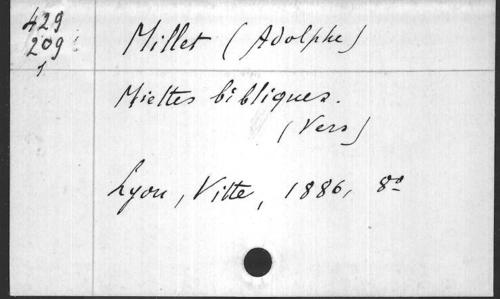 429
209
1
Millet (Adolphe)
Miettes bibliques.
(Vers)
Lyon, Vitte, 1886, 8º